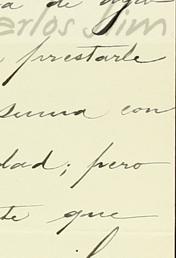 a de
Carlos Slim
, prestarle
suma con
dad; pero
te que